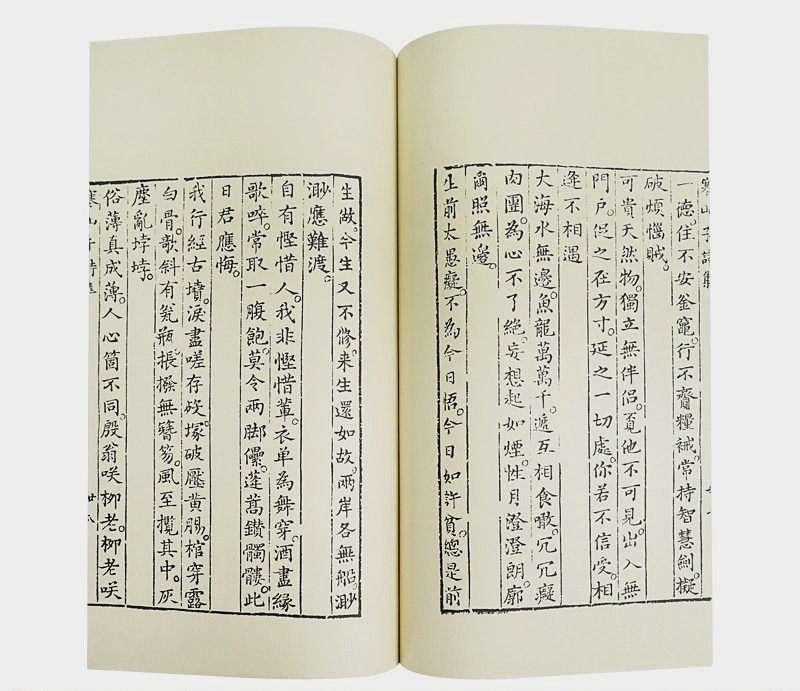 寒山子詩
一德。住不安釜竈。行不齎糧裓。常持智慧劍。擬
破煩惱賊。
可貴天然物。獨立無伴侶。覓他不可見。出入無
門戶。促之在方寸。延之一切處。你若不信受。相
逢不相遇
大海水無邊。魚龍萬萬千。遞互相食噉。冗冗癡
肉團。為心不了絕。妄想起如煙。性月澄澄朗。廓
爾照無邊。
生前太愚癡。不為今日悟。今日如許貧。總是前
生做。今生又不修。來生還如故。兩岸各無船。渺
渺應難渡。
自有慳惜人。我非慳惜輩。衣单為舞穿。酒盡緣
歌啐。常取一腹飽。莫令兩脚儽。蓬蒿鑚髑髏。此
日君應悔。
我行經古墳。淚盡嗟存歿。塚破壓黄腸。棺穿露
白骨。欹斜有瓮瓶。掁撥無簪笏。風至攬其中。灰
塵亂埻埻。
俗薄真成薄。人心箇不同。殷翁咲柳老。柳老咲
寒山子詩集 廿八